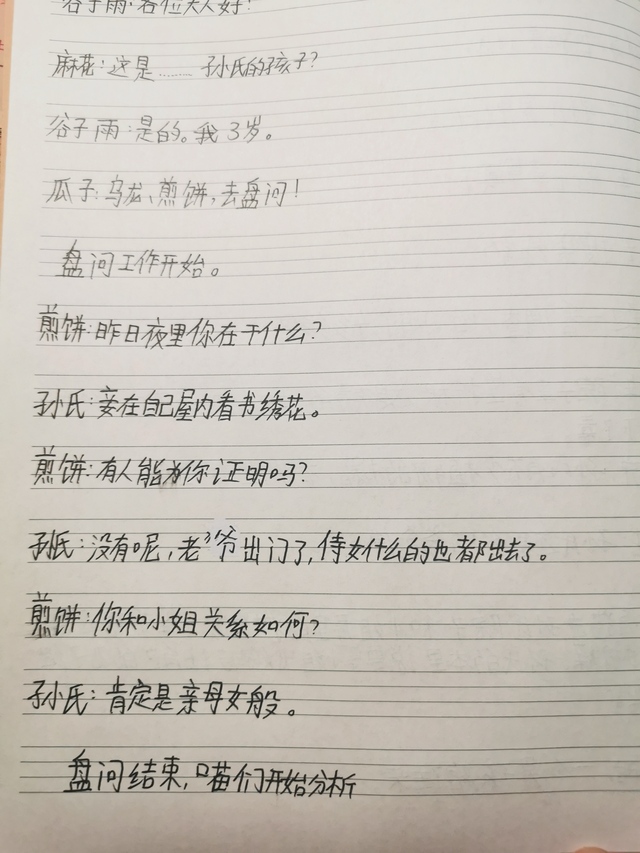 谷子雨:各位大人好!
麻花:这是……孙氏的孩子?
谷子雨:是的。我3岁。
瓜子:乌龙、煎饼,去盘问!
盘问工作开始。
煎饼:昨日夜里你在干什么?
孙氏:妾在自己屋内看书绣花。
煎饼:有人能为你证明吗?
孙氏:没有呢,老爷出门了,侍女什么的也都出去了。
煎饼:你和小姐关系如何?
孙氏:肯定是亲母女般。
盘问结束,喵们开始分析